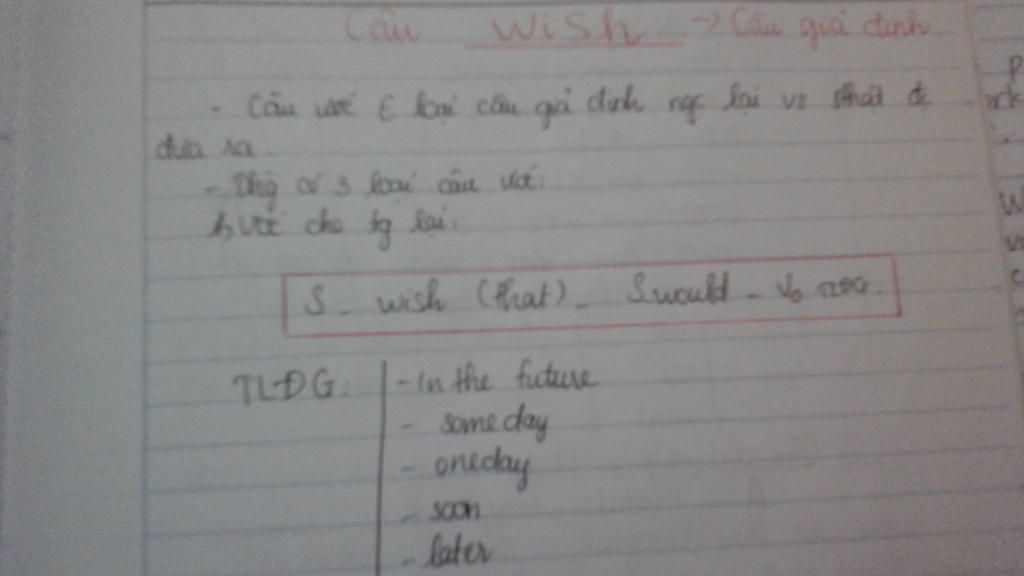 Câu Wish → Câu giả định
- Câu ước ∈ loại câu giả định ngc lại vs thật đc
đưa ra.
- Thg có 3 loại câu ước:
1, ước cho tg lai:
S - wish (that) - S would - Vo
TLĐG: - In the future
- someday
- oneday
- soon
- later